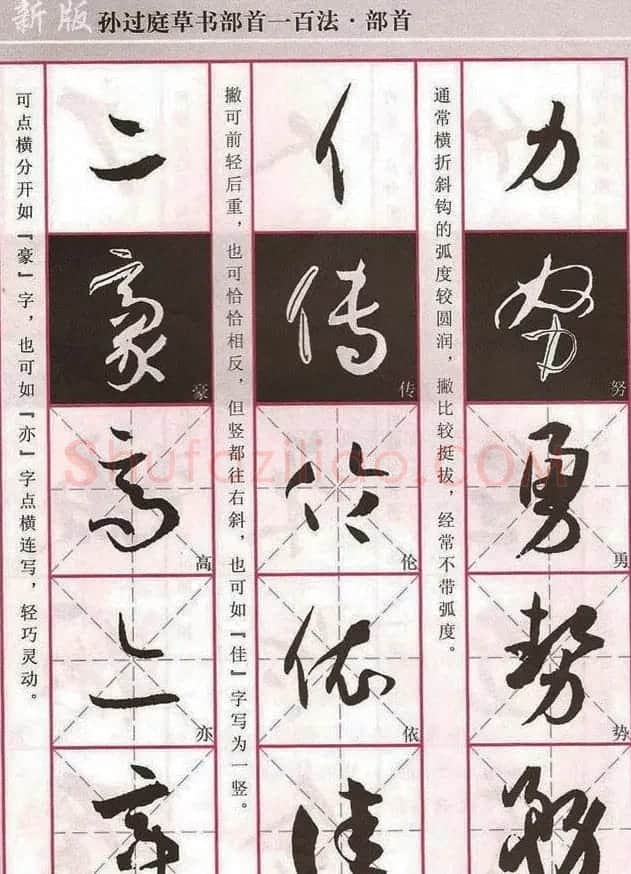 新版 孙过庭草书部首一百法·部首
力
努
勇
势
通常横折斜钩的弧度较圆润，撇比较挺拔，经常不带弧度。
亻
传
伦
依
佳
撇可前轻后重，也可恰恰相反，但竖都往右斜，也可如『佳』字写为一竖。
亠
豪
高
亦
可点横分开如『豪』字，也可如『亦』字点横连写，轻巧灵动。
Shufaziliao.COM